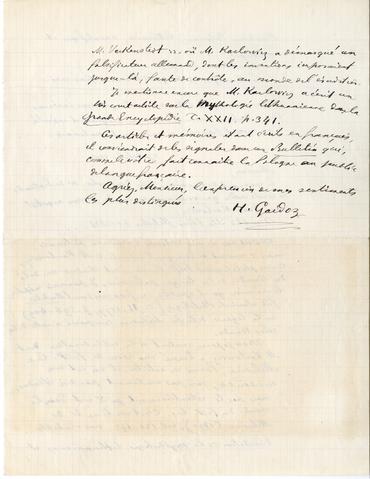 M. Veckenstedt où M. Karlowicz a démarqué un
falsificateur allemand, dont les inventions imposaient
jusque-là, faute de contrôle, au monde de l'érudition.
Je mentionne encore que M. Karlowicz a écrit un
article sur la Mythologie lithuanienne dans la
Grande Encyclopédie t. XXII, p. 341.
Ces articles et mémoires étant écrits en français,
il conviendrait de les signaler dans un Bulletin qui,
comme le vôtre, fait connaître la Pologne au public
de langue française.
Agréez, Monsieur, l'expression de mes sentiments
les plus distingués
H. Gaidoz